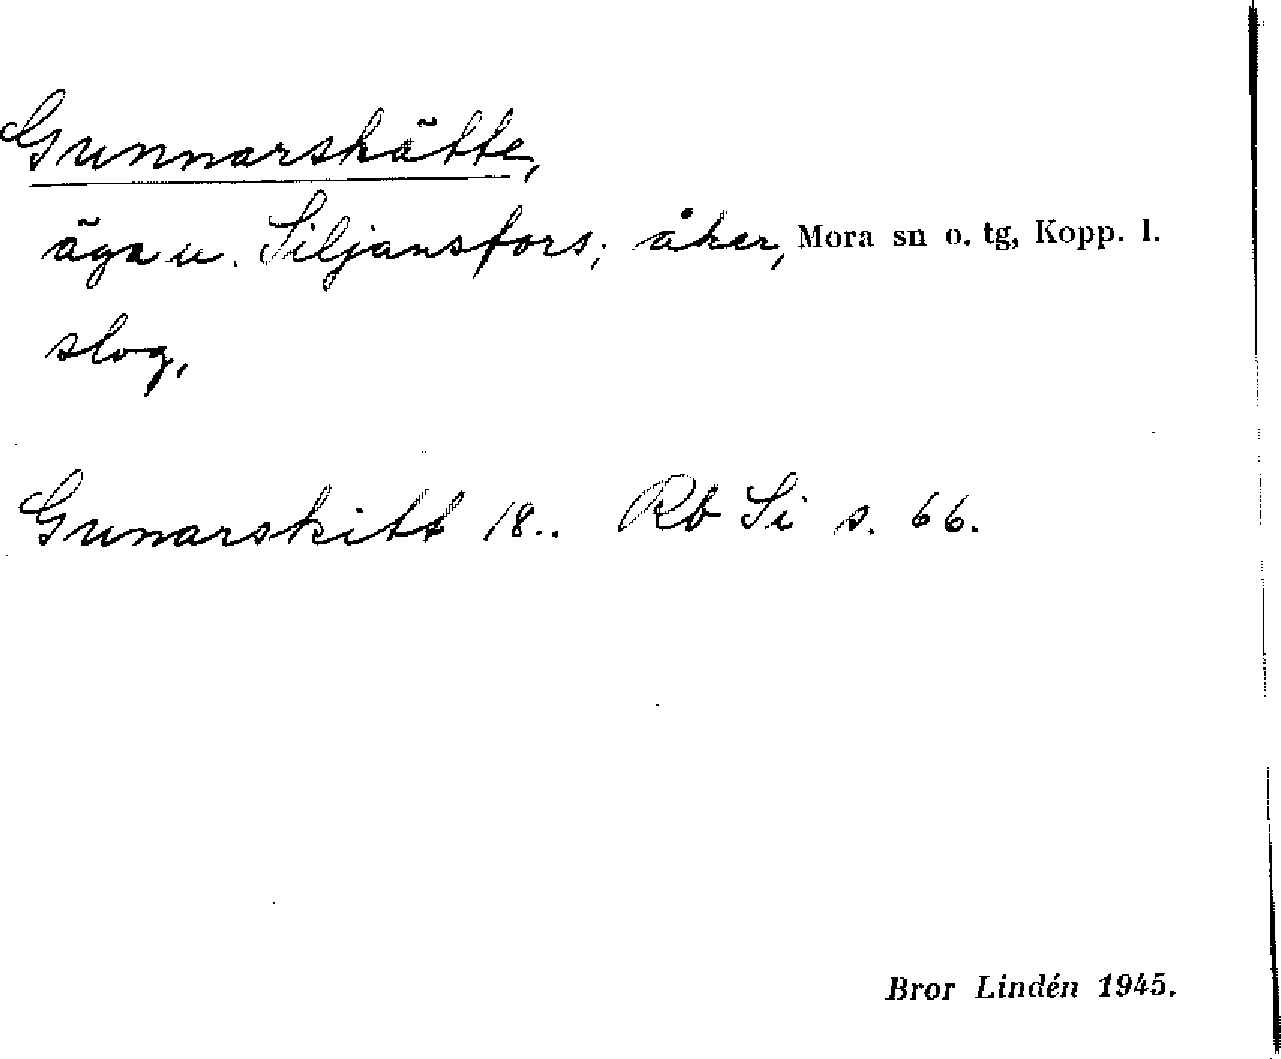 Gunnarskätte,
äga u. Siljansfors; åker, Mora sn o. tg, Kopp. l.
slog,
Gunarskitt 18.. Rb Si s. 66.
Bror Lindén 1945.